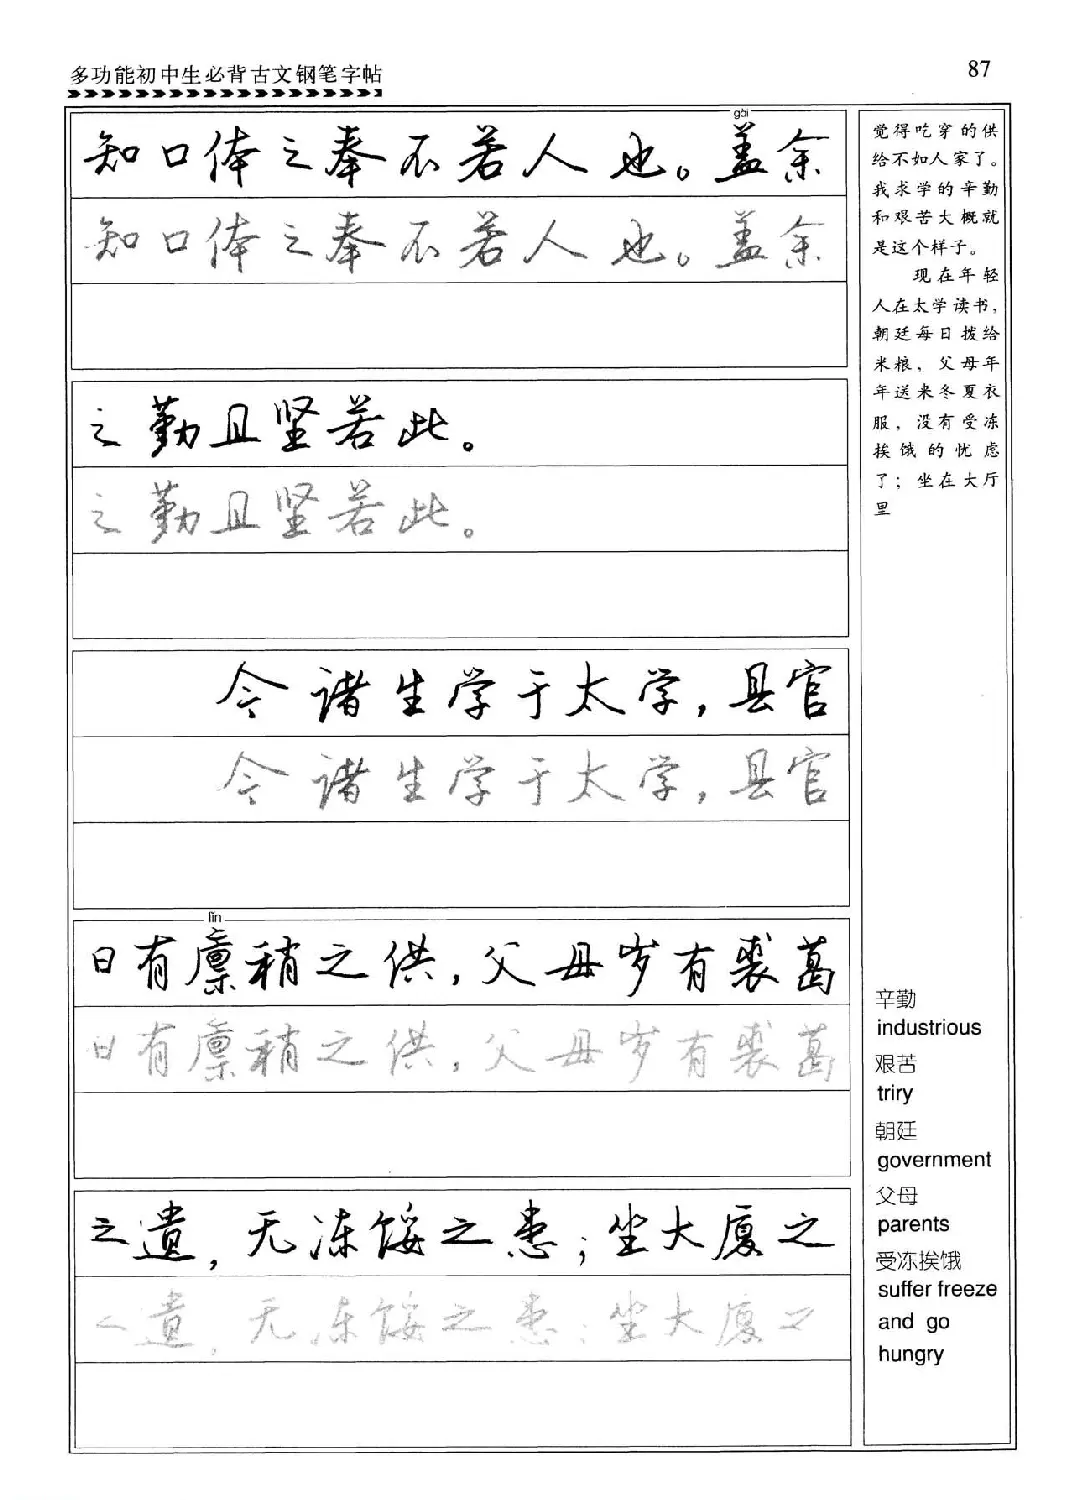 多功能初中生必背古文钢笔字帖
87
gài
知口体之奉不若人也。盖余
知口体之奉不若人也。盖余
之勤且坚若此。
之勤且坚若此。
今诸生学于太学,县官
今诸生学于太学,县官
lǐn
日有廪稍之供,父母岁有裘葛
日有廪稍之供,父母岁有裘葛
之遗,无冻馁之患;坐大厦之
之遗,无冻馁之患;坐大厦之
觉得吃穿的供
给不如人家了。
我求学的辛勤
和艰苦大概就
是这个样子。
现在年轻
人在太学读书,
朝廷每日拨给
米粮,父母年
年送来冬夏衣
服,没有受冻
挨饿的忧虑
了;坐在大厅
里
辛勤
industrious
艰苦
triry
朝廷
government
父母
parents
受冻挨饿
suffer freeze
and go
hungry